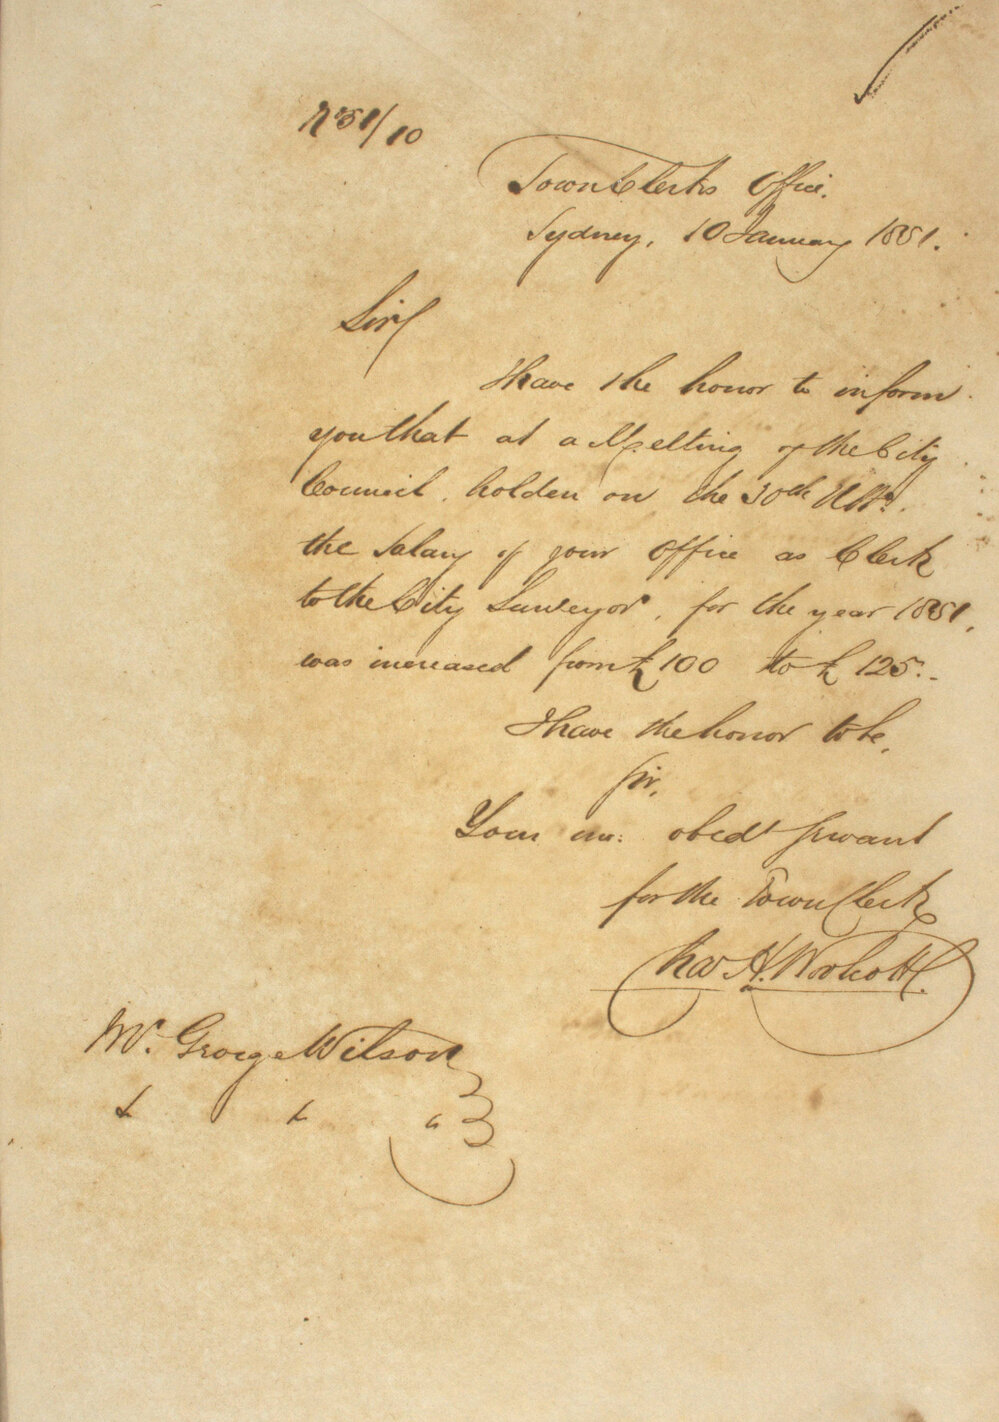 No 51/10
Town Clerks Office.
Sydney, 10 January 1851.
Sir
I have the honor to inform
you that at a Meeting of the City
Council holden on the 30th Ulto.
the Salary of your Office as Clerk
to the City Surveyor, for the year 1851,
was increased from £100 to £125.
I have the honor to be,
Sir,
Your mo: obedt Servant
for the Town Clerk
Chas H. Woolcott.
Mr. George Wilson